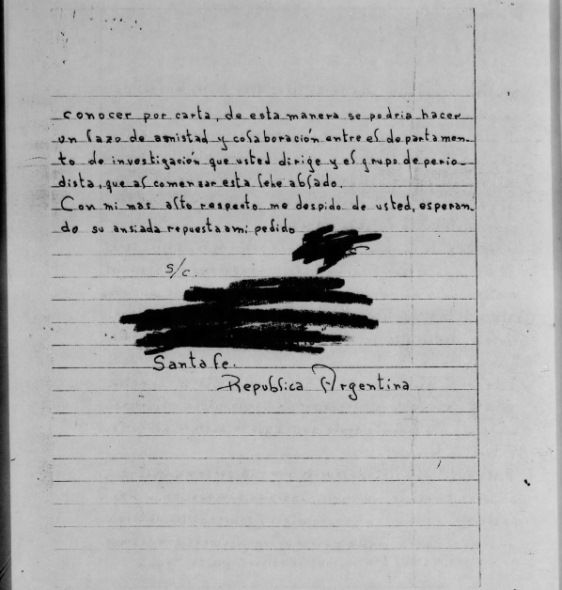 conocer por carta, de esta manera se podria hacer
un lazo de amistad y colaboración entre el departamen-
to de investigación que usted dirige y el grupo de perio-
dista, que al comenzar esta lehe ablado.
Con mi mas alto respecto me despido de usted, esperan-
do su ansiada repuesta a mi pedido
s/c.
Santa fe.
Republica Argentina